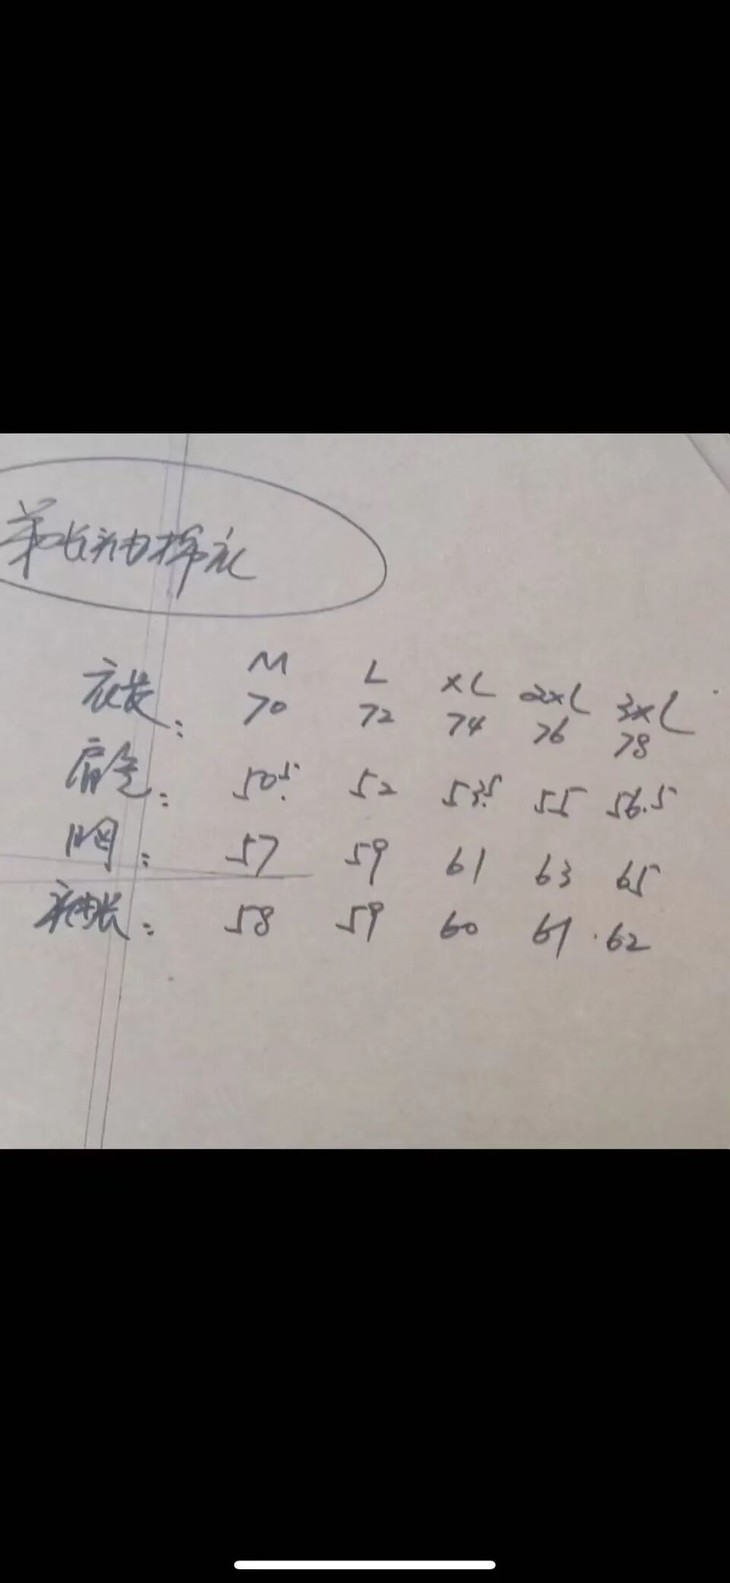 M L XL 2XL 3XL
衣长: 70 72 74 76 78
肩宽: 50.5 52 53.5 55 56.5
胸: 57 59 61 63 65
袖长: 58 59 60 61 62